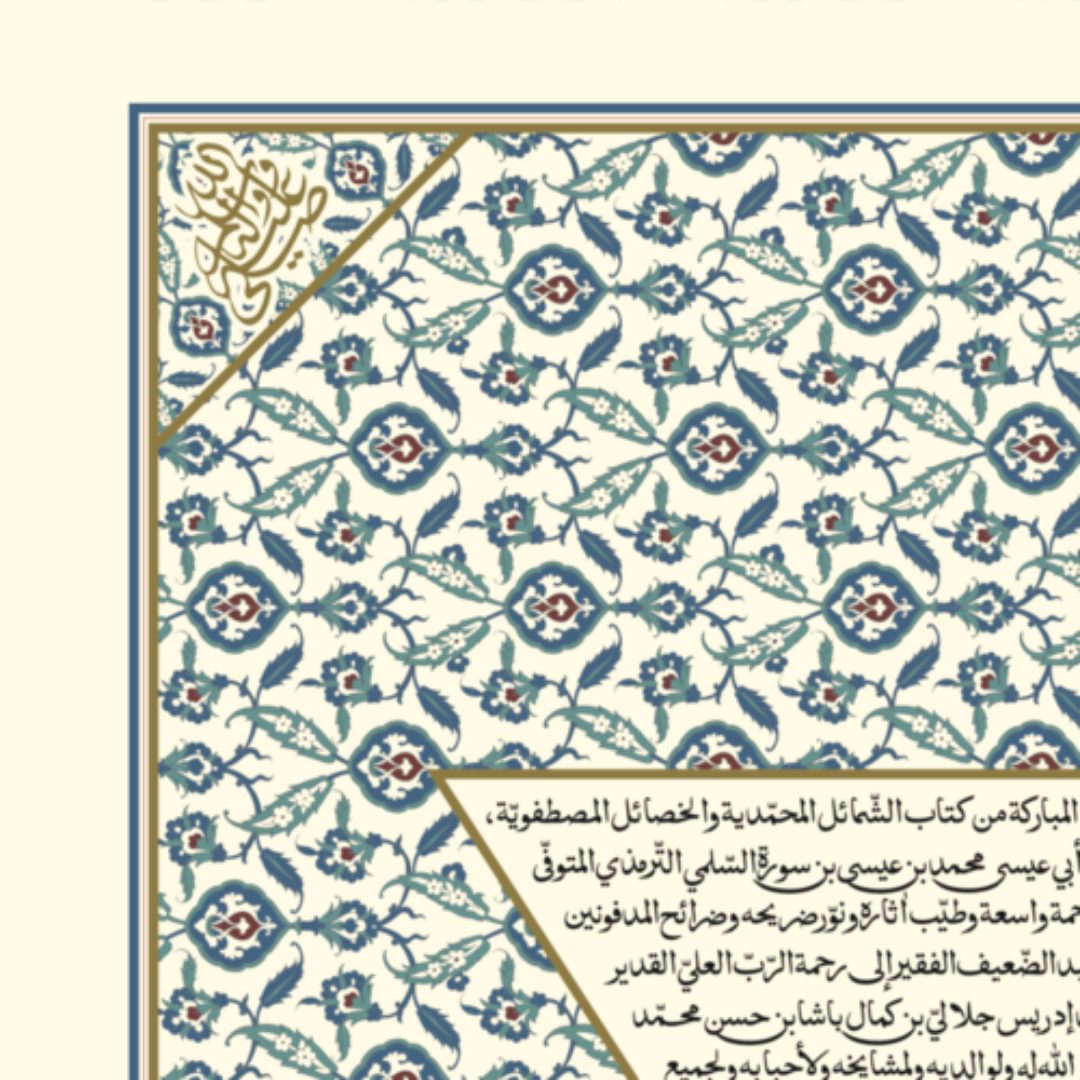 صلى الله عليه وآله وسلم
المباركة من كتاب الشّمائل المحمّدية والخصائل المصطفويّة،
أبي عيسى محمد بن عيسى بن سورة السّلمي التّرمذي المتوفّى
واسعة وطيّب آثاره ونوّر ضريحه وضرائح المدفونين
الضّعيف الفقير إلى رحمة الرّبّ العليّ القدير
إدريس جلاليّ بن كمال باشا بن حسن محمّد
الله له ولوالديه ولمشايخه ولأحبابه ولجميع